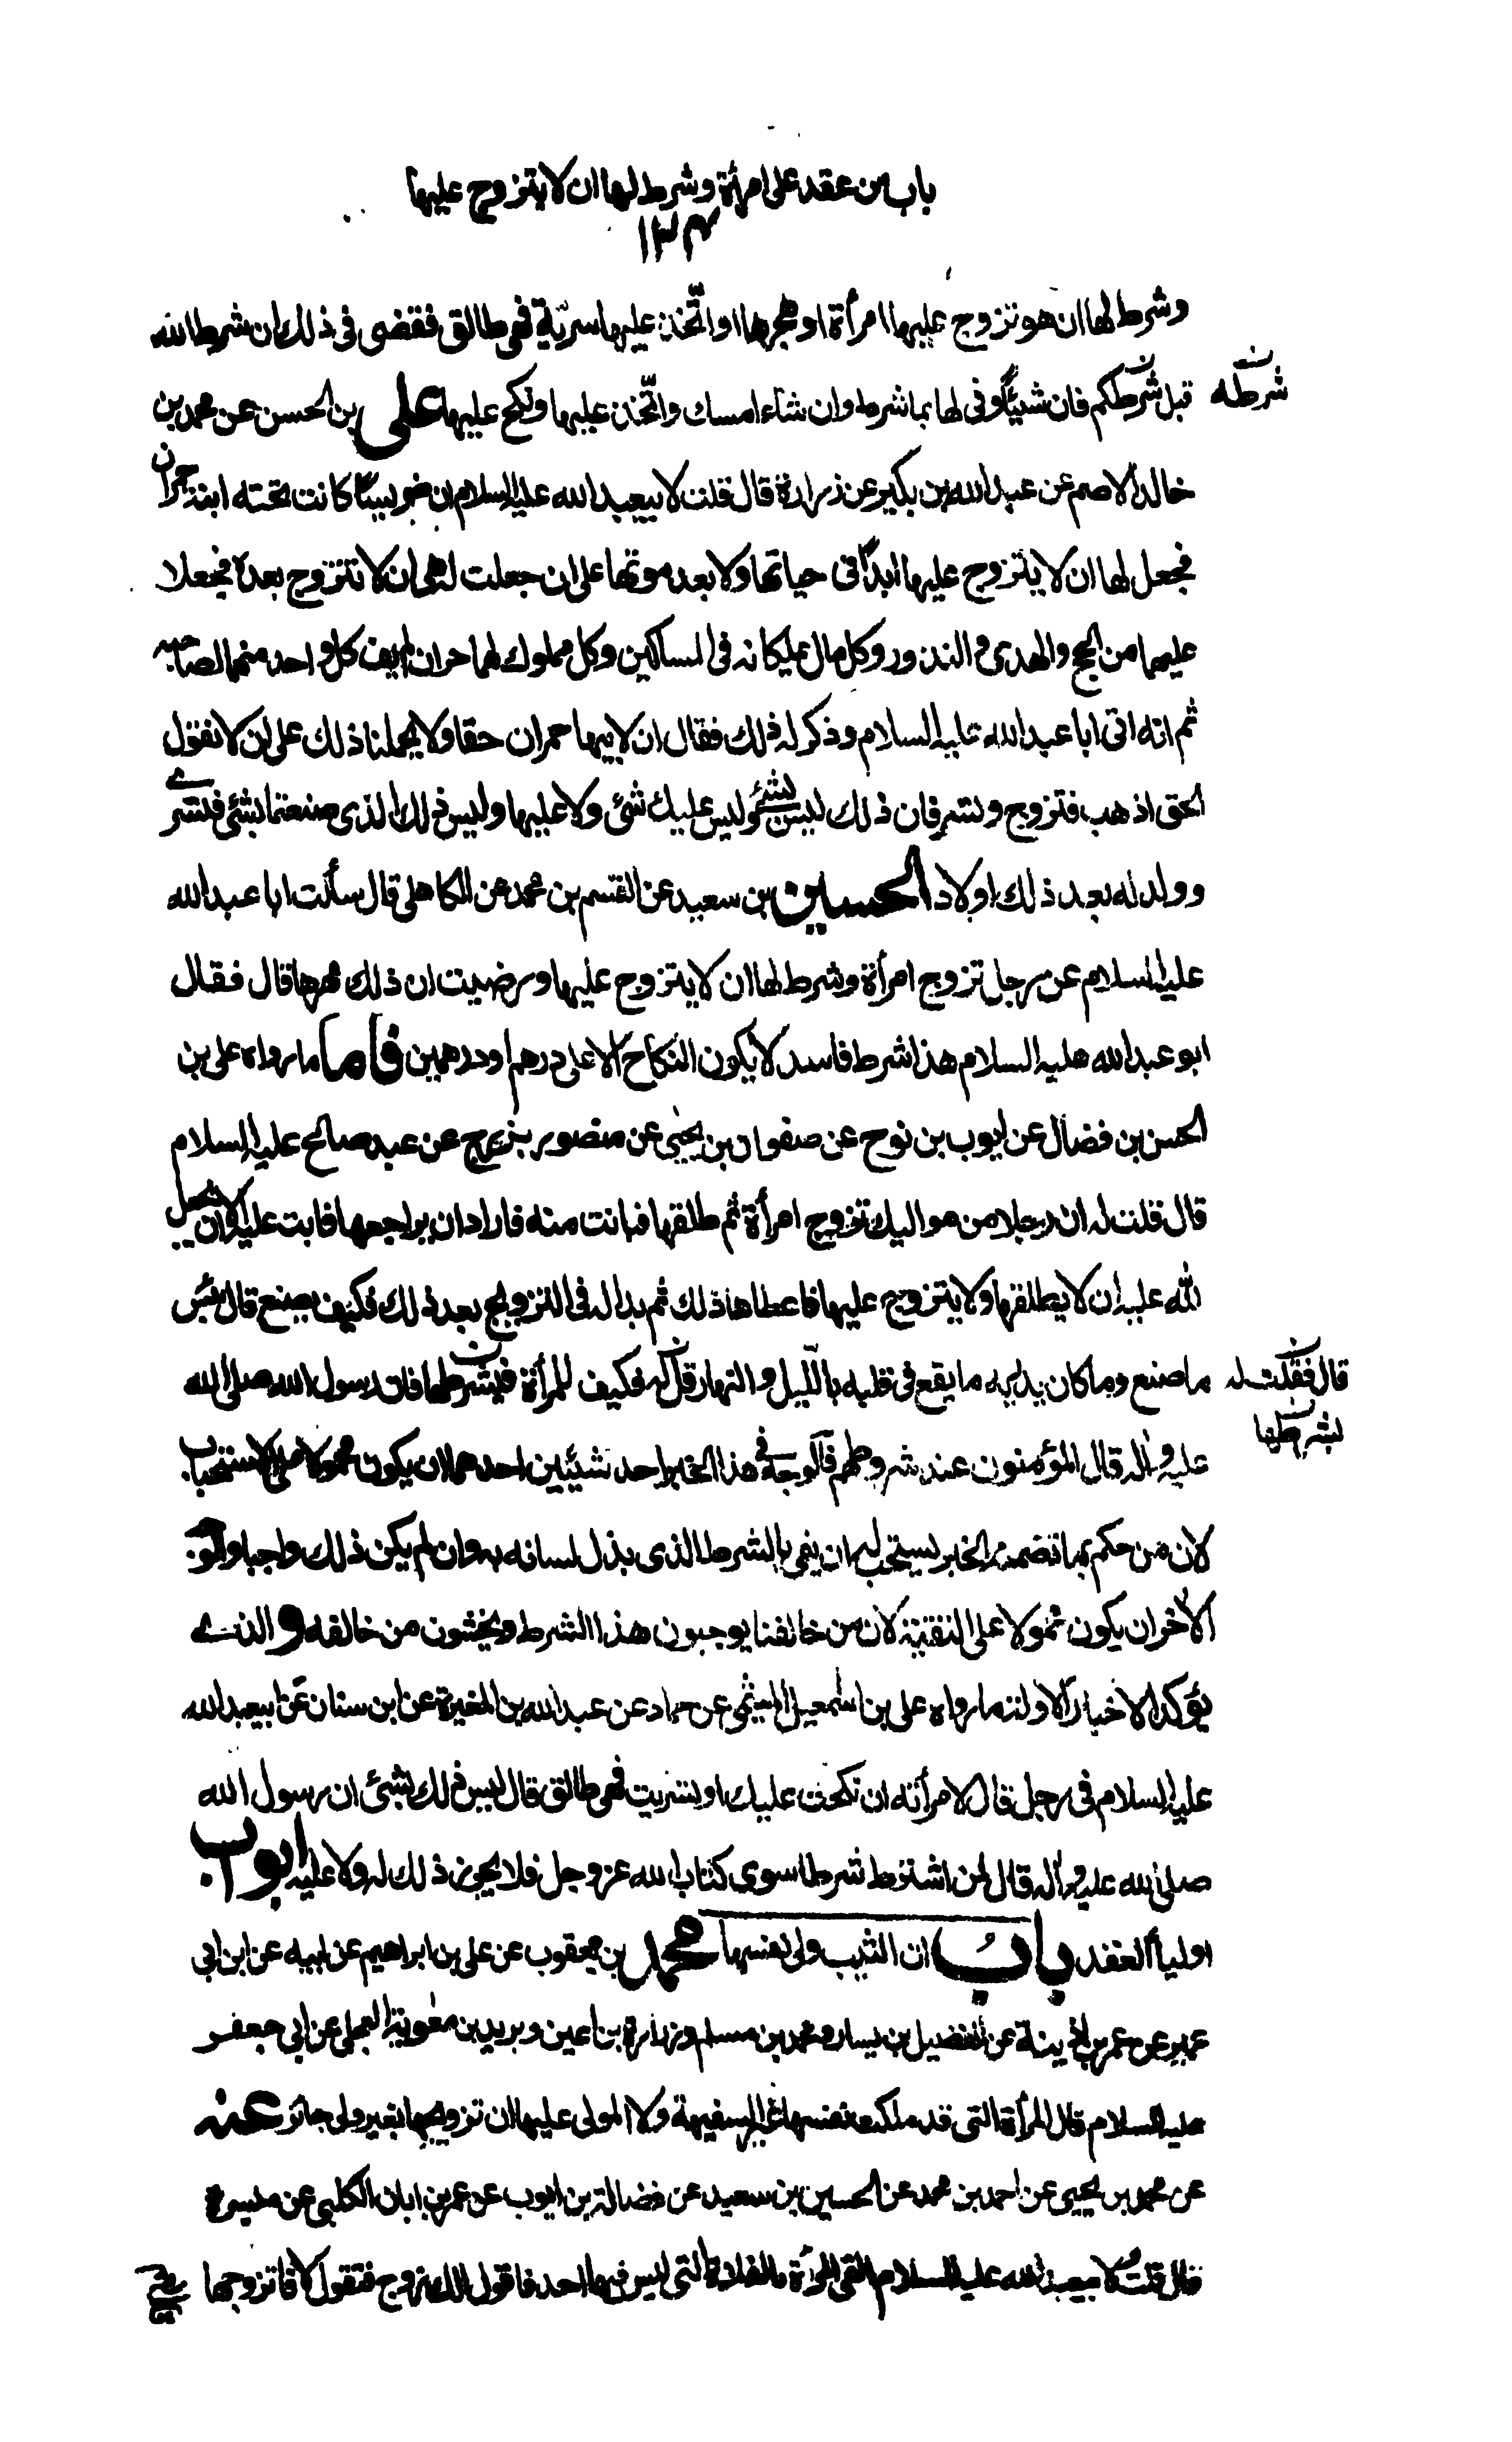 باب من عقد على امرأة وشرط لها ان لا يتزوج عليها
١٣٤
وشرط لها ان هو تزوج عليها امرأة او هجرها او اتّخذ عليها سرّية فهي طالق فقضى في ذلك ان شرط الله
شرطه
قبل شرطكم فان شاء وفى لها بما شرط وان شاء امسك واتّخذ عليها ونكح عليها علي بن الحسن عن محمد بن
خالد الاصم عن عبد الله بن بكير عن زرارة قال قلت لابيعبد الله عليه السلام ان ضريسًا كانت تحته ابنة حمران
فجعل لها ان لا يتزوج عليها ابدًا في حياتها ولا بعد موتها على ان جعلت له هي ان لا تتزوج بعده فجعلا
عليهما من الحج والهدى والنذور وكل مال يملكانه في المساكين وكل مملوك لهما حران لم يف كل واحد منهما لصاحبه
ثم انه اتى ابا عبد الله عليه السلام وذكر له ذلك فقال ان لابيها حمران حقا ولا يحملنا ذلك على ان لا نقول
الحق اذهب فتزوج وتسر فان ذلك ليس بشئ وليس عليك شئ ولا عليها وليس ذلك الذي صنعتما بشئ فتسرى
وولد له بعد ذلك اولاد الحسين بن سعيد عن القسم بن محمد عن الكاهلي قال سألت ابا عبد الله
عليه السلام عن رجل تزوج امرأة وشرط لها ان لا يتزوج عليها ورضيت ان ذلك مهرها قال فقال
ابو عبد الله عليه السلام هذا شرط فاسد لا يكون النكاح الا على درهم او درهمين فاما ما رواه على بن
الحسن بن فضال عن ايوب بن نوح عن صفوان بن يحيى عن منصور بزرج عن عبد صالح عليه السلام
قال قلت له ان رجلا من مواليك تزوج امرأة ثم طلقها فبانت منه فاراد ان يراجعها فابت عليه الا ان يجعل
لله عليه ان لا يطلقها ولا يتزوج عليها فاعطاها ذلك ثم بدا له في التزويج بعد ذلك فكيف يصنع قال بئس
قال فقلت له
ما صنع وما كان يدريه ما يقع في قلبه بالليل والنهار قل له فليف للمرأة بشرطها فان رسول الله صلى الله
بشرطها
عليه وآله قال المؤمنون عند شروطهم فالوجه في هذا الخبر احد شيئين احدهما ان يكون محمولا على الاستحباب
لان من حكم بما تضمنه الخبر يستحب له ان يفي بالشرط الذي بذل لسانه به وان لم يكن ذلك واجبا والوجه
الآخر ان يكون محمولا على التقية لان من خالفنا يوجبون هذا الشرط ويحنثون من خالفه والذي
يؤكد الاخبار الاولة ما رواه على بن اسمعيل الميثمي عن حماد عن عبد الله بن المغيرة عن ابن سنان عن ابيعبد الله
عليه السلام في رجل قال لامرأته ان نكحت عليك او تسريت فهي طالق قال ليس ذلك بشئ ان رسول الله
صلى الله عليه وآله قال من اشترط شرطا سوى كتاب الله عز وجل فلا يجوز ذلك له ولا عليه ابواب
اولياء العقد باب ان الثيب ولى نفسها محمد بن يعقوب عن على بن ابراهيم عن ابيه عن ابن ابي
عمير عن عمر بن اذينة عن الفضيل بن يسار ومحمد بن مسلم وزرارة بن اعين وبريد بن معوية العجلي عن ابي جعفر
عليه السلام قال المرأة التي قد ملكت نفسها غير السفيهة ولا المولى عليها ان تزويجها بغير ولى جائز عنه
عن محمد بن يحيى عن احمد بن محمد عن الحسين بن سعيد عن فضالة بن ايوب عن عمر بن ابان الكلبي عن ميسرة
قال قلت لابيعبد الله عليه السلام القى المرأة بالفلاة التي ليس فيها احد فاقول الك زوج فتقول لا فاتزوجها